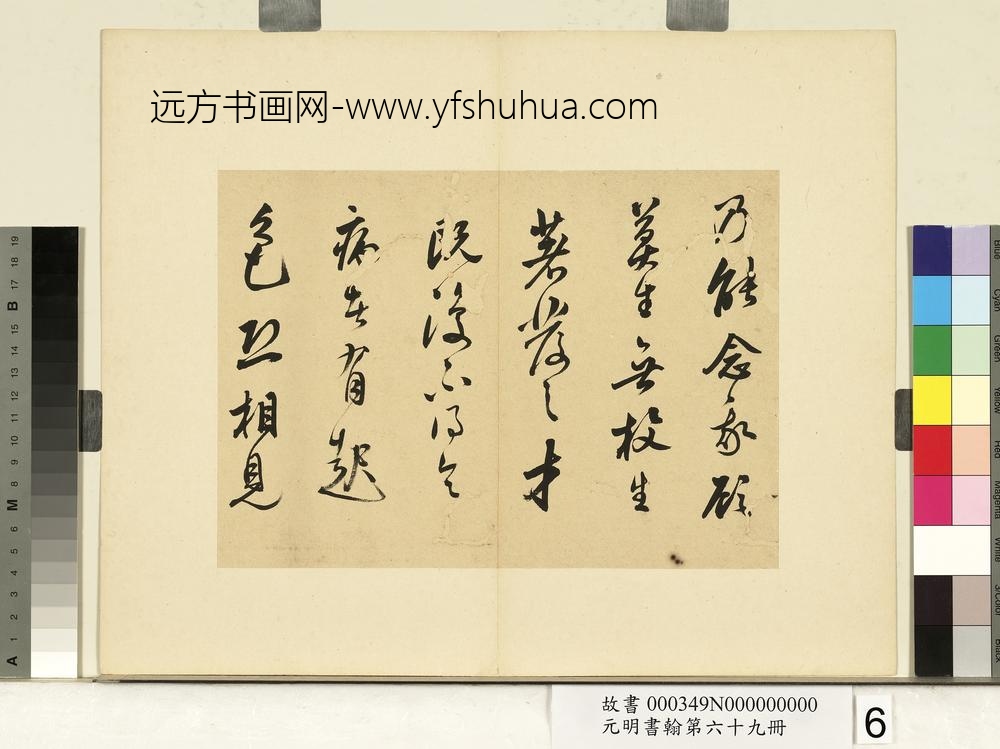 远方书画网-www.yfshuhua.com
乃能念我顧
莫生無枚生
著發之才
既復不得令
病者有起
色相見
故書 000349N000000000
元明書翰第六十九冊
6
19
18
17
B
16
15
14
13
12
11
10
9
8
M
7
6
5
4
3
2
1
A
Blue
Cyan
Green
Yellow
Red
Magenta
White
3/Color
Black